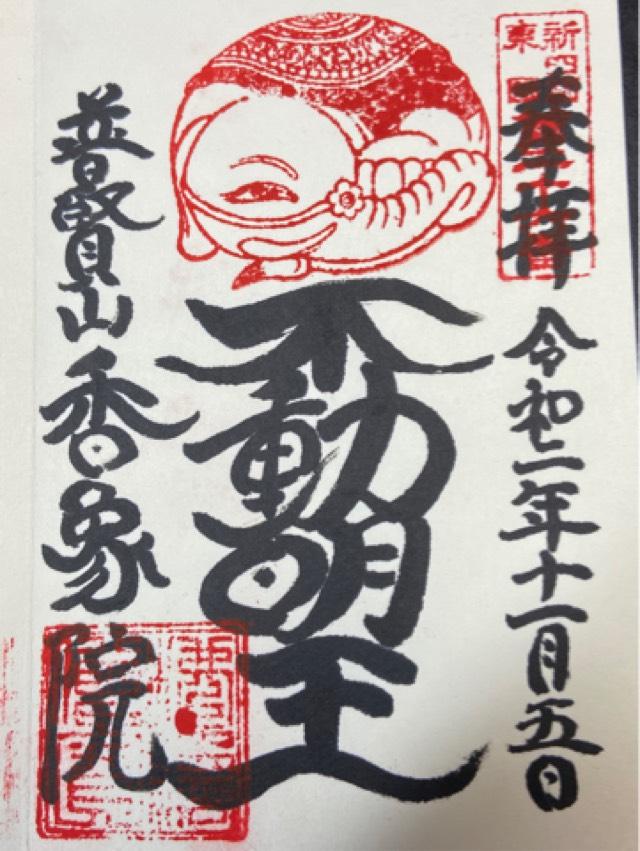 奉拝
令和二年十一月五日
不動明王
普賢山香象院